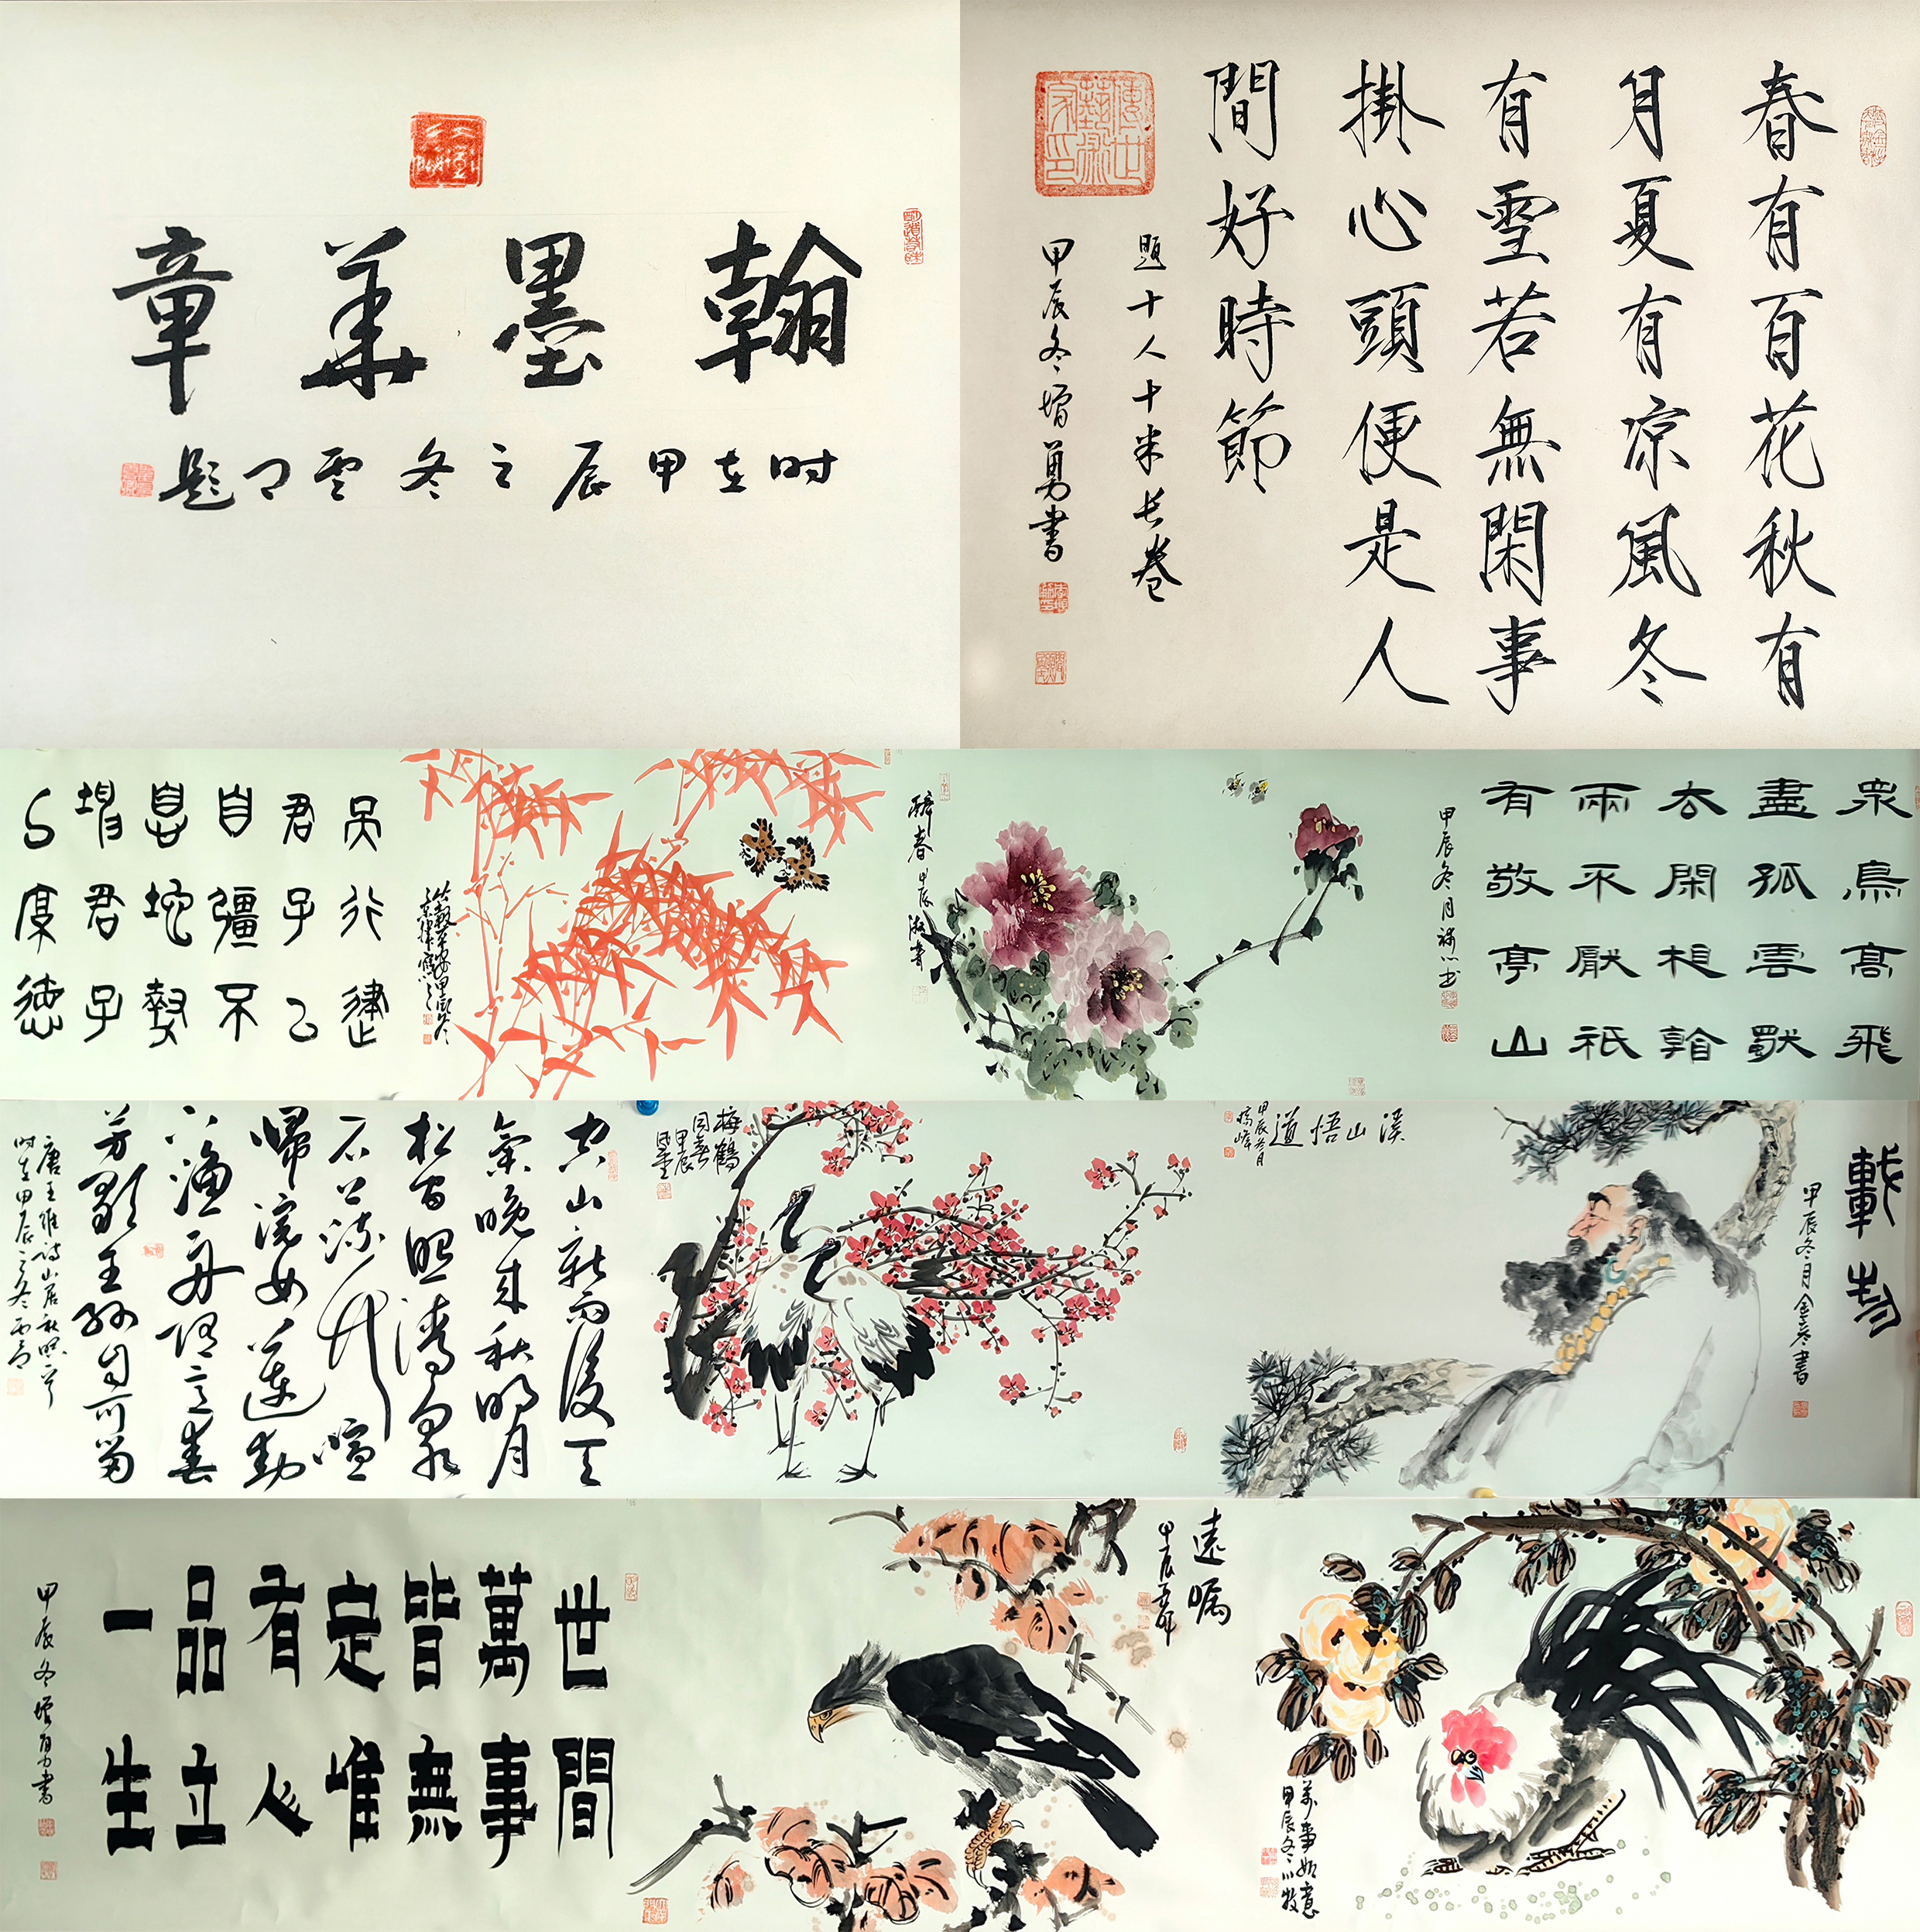 翰墨華章
时在甲辰之冬雲
題
春有百花秋有
月夏有涼風冬
有雪若無閑事
掛心頭便是人
間好時節
題十人十米长卷
甲辰冬增勇書
眾鳥高飛
盡孤雲獨
去閑相看
兩不厭祇
有敬亭山
甲辰冬月
書
醉春
甲辰
天行健
君子以
自彊不
息地勢
坤君子
以厚德
載物
甲辰冬月金冬書
溪山悟道
甲辰冬月
梅鶴
同春
甲辰
空山新雨後天
氣晚来秋明月
松间照清泉
石上流竹喧
歸浣女蓮動
下漁舟随意春
芳歇王孫自可留
唐王維诗山居秋暝一首
时在甲辰之冬
萬事如意
甲辰冬
遠矚
甲辰
世間
萬事
皆無
定唯
有人
品立
一生
甲辰冬增勇書